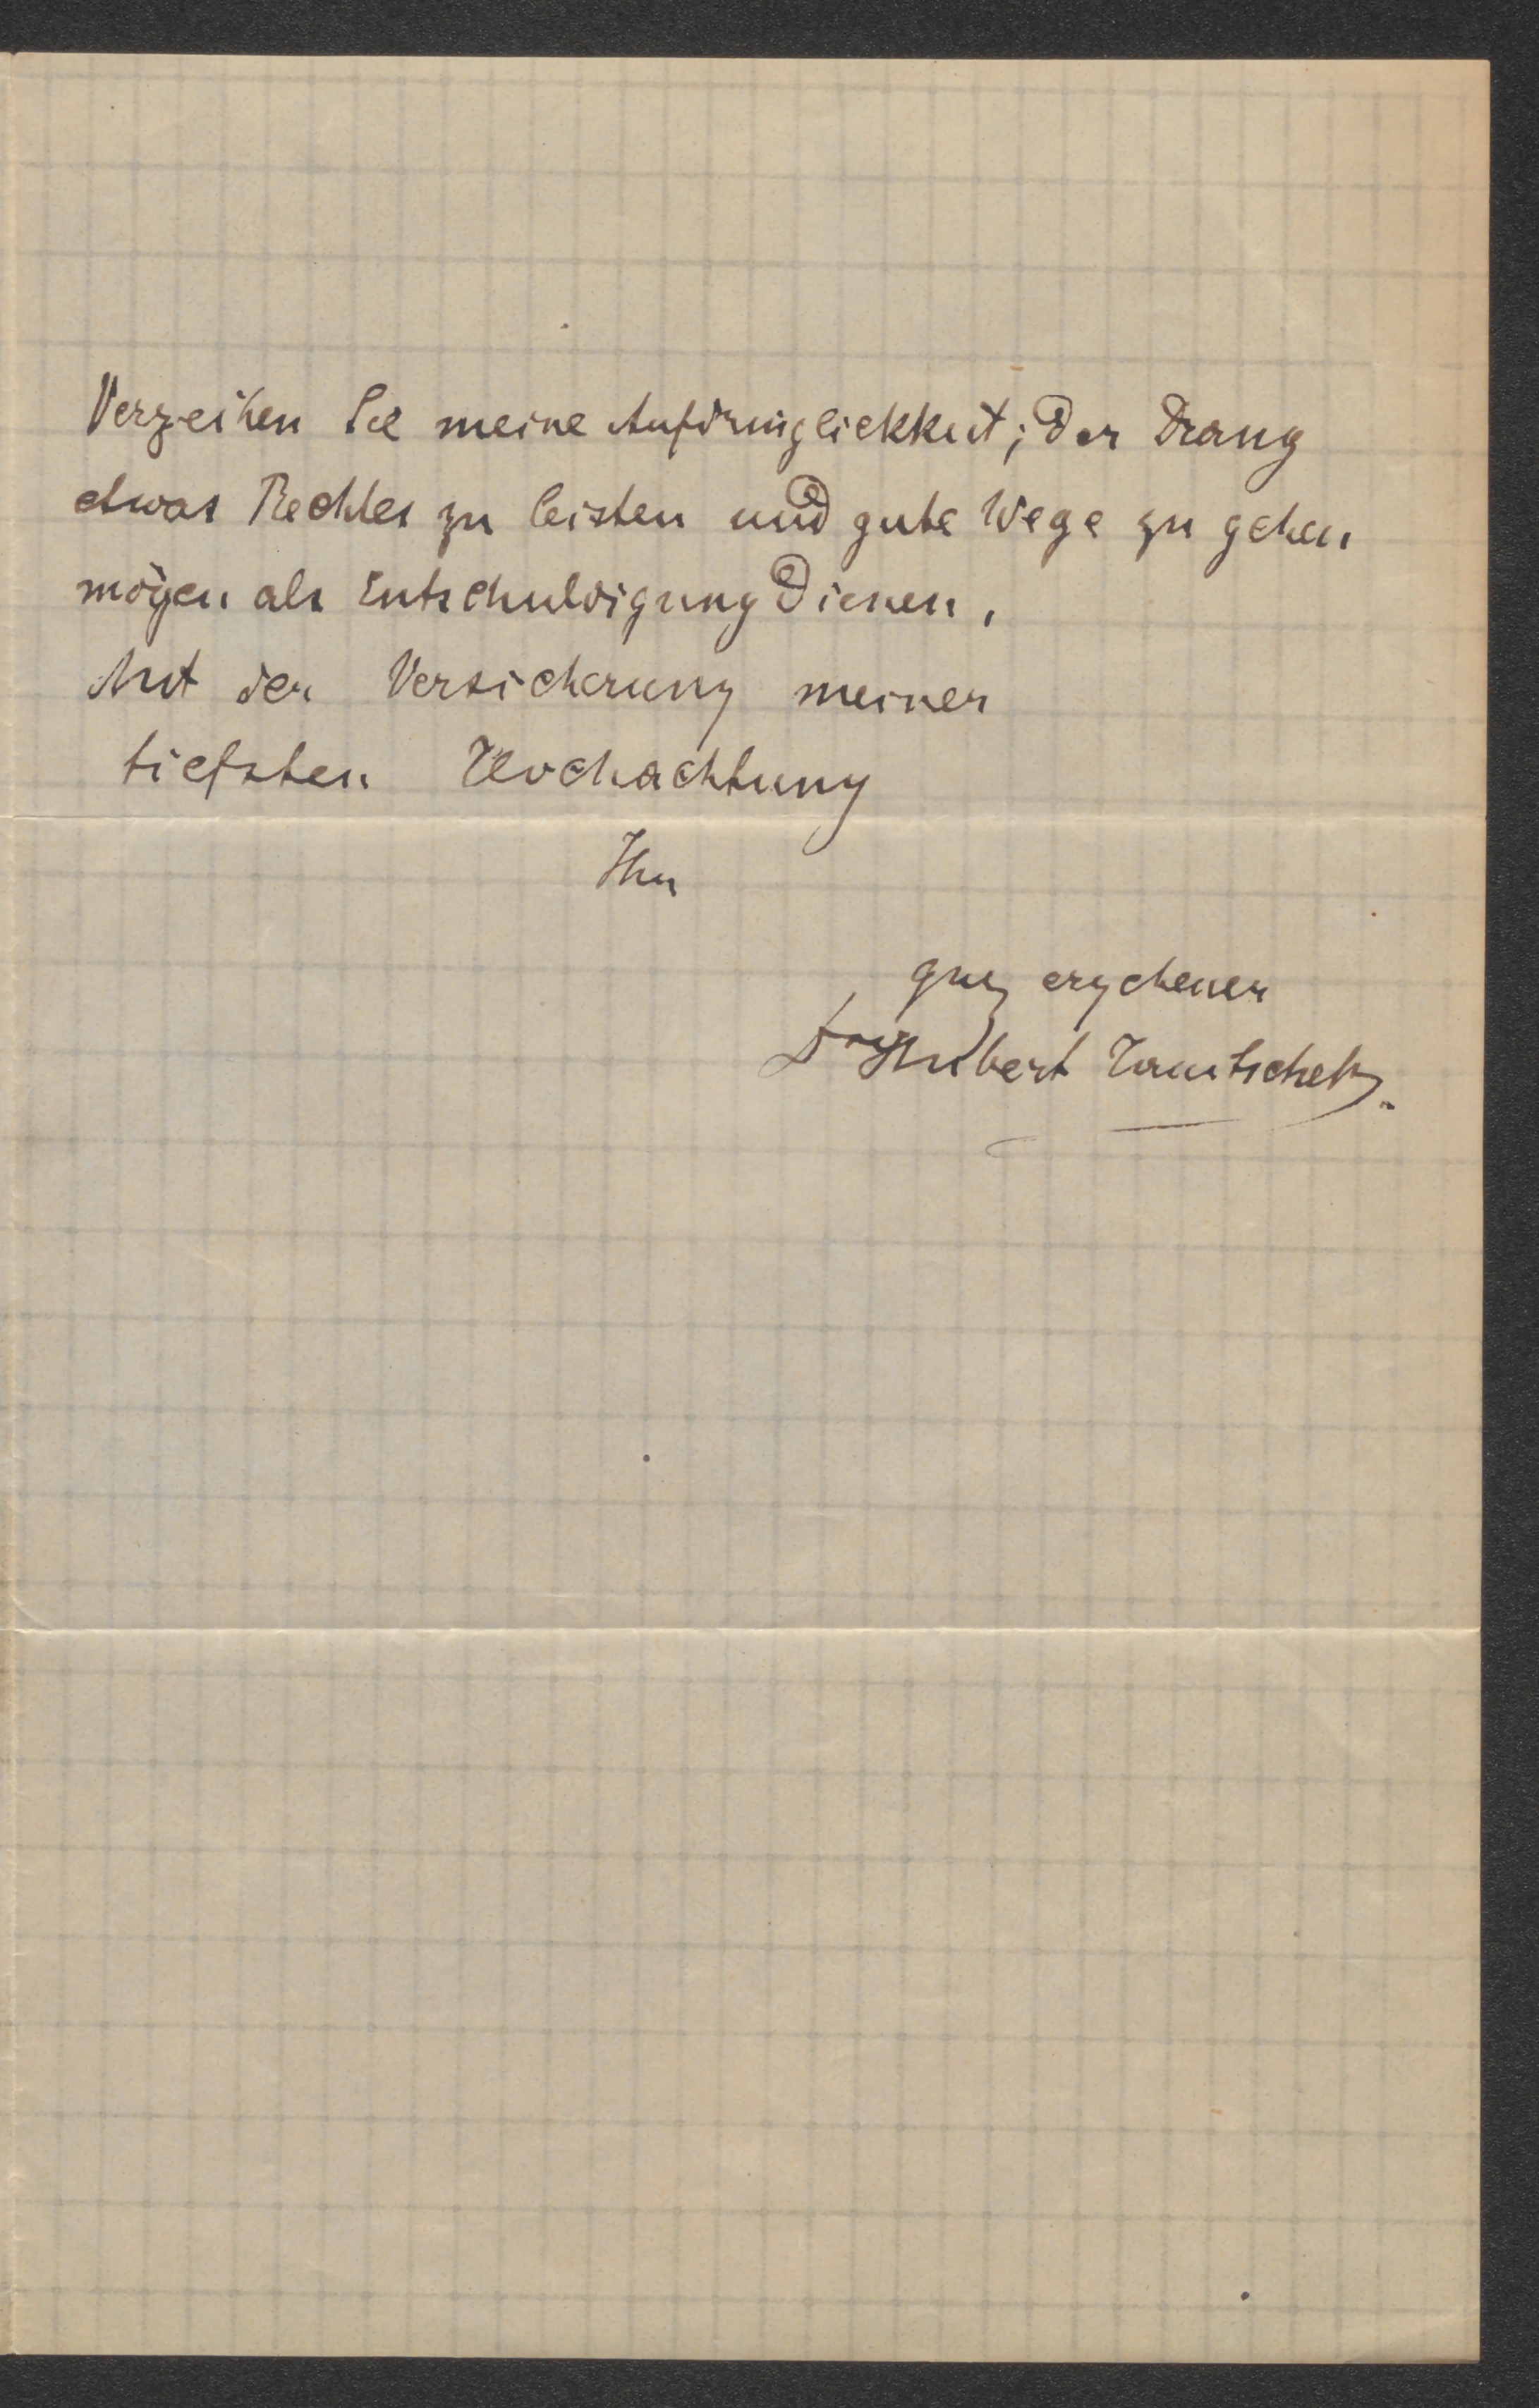 Verzeihen Sie meine Aufdringlichkeit; der Drang
etwas Rechtes zu leisten und gute Wege zu gehen
mögen als Entschuldigung dienen.
Mit der Versicherung meiner
tiefsten Hochachtung
Ihr
ganz ergebener
Hubert